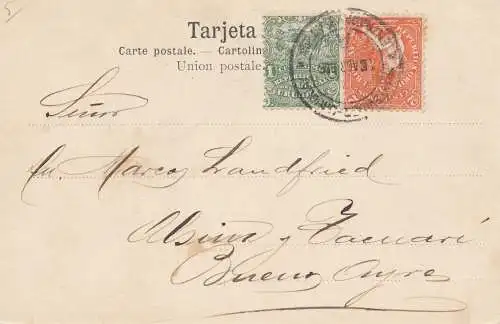 5
Tarjeta
Carte postale. — Cartolin
Union postale.
Señor
Marcos Landfried
Alsina y Tacuari
Buenos Ayres